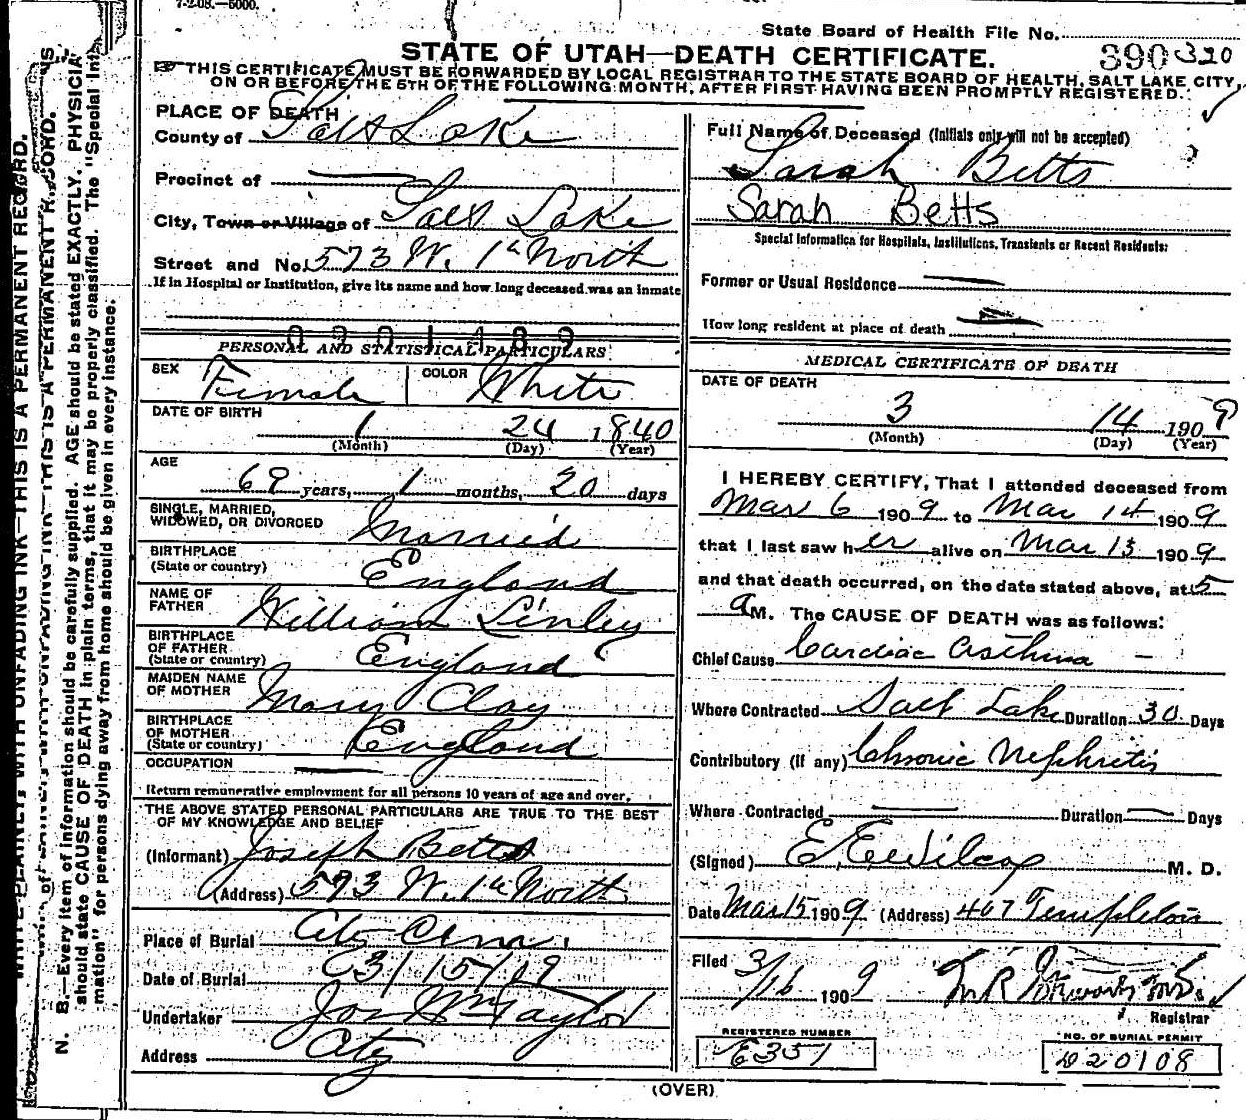 7-2-08.—5000.
State Board of Health File No.
STATE OF UTAH—DEATH CERTIFICATE.
390 320
THIS CERTIFICATE MUST BE FORWARDED BY LOCAL REGISTRAR TO THE STATE BOARD OF HEALTH, SALT LAKE CITY,
ON OR BEFORE THE 5TH OF THE FOLLOWING MONTH, AFTER FIRST HAVING BEEN PROMPTLY REGISTERED.
PLACE OF DEATH
County of Salt Lake
Precinct of
City, Town or Village of Salt Lake
Street and No. 573 W. 1st North
If in Hospital or Institution, give its name and how long deceased was an inmate
0201489
PERSONAL AND STATISTICAL PARTICULARS
SEX Female
COLOR White
DATE OF BIRTH
1 24 1840
(Month) (Day) (Year)
AGE
69 years, 1 months, 20 days
SINGLE, MARRIED,
WIDOWED, OR DIVORCED Married
BIRTHPLACE
(State or country) England
NAME OF
FATHER William Linley
BIRTHPLACE
OF FATHER
(State or country) England
MAIDEN NAME
OF MOTHER Mary Clay
BIRTHPLACE
OF MOTHER
(State or country) England
OCCUPATION
Return remunerative employment for all persons 10 years of age and over.
THE ABOVE STATED PERSONAL PARTICULARS ARE TRUE TO THE BEST
OF MY KNOWLEDGE AND BELIEF
(Informant) Joseph Betts
(Address) 573 W. 1st North
Place of Burial City Cem.
Date of Burial 3/15/09
Undertaker Jos Wm Taylor
Address City
Full Name of Deceased (Initials only will not be accepted)
Sarah Betts
Sarah Betts
Special Information for Hospitals, Institutions, Transients or Recent Residents:
Former or Usual Residence
How long resident at place of death
MEDICAL CERTIFICATE OF DEATH
DATE OF DEATH
3 14 1909
(Month) (Day) (Year)
I HEREBY CERTIFY, That I attended deceased from
Mar 6 1909 to Mar 14 1909
that I last saw her alive on Mar 13 1909
and that death occurred, on the date stated above, at 5
a M. The CAUSE OF DEATH was as follows:
Chief Cause Cardiac Asthma
Where Contracted Salt Lake Duration 30 Days
Contributory (if any) Chronic Nephritis
Where Contracted Duration Days
(Signed) E. E. Wilcox M. D.
Date Mar 15 1909 (Address) 407 Templeton
Filed 3/16 1909
Registrar
REGISTERED NUMBER
E351
NO. OF BURIAL PERMIT
D20108
(OVER)
WRITE PLAINLY, WITH UNFADING INK—THIS IS A PERMANENT RECORD.
N. B.—Every item of information should be carefully supplied. AGE should be stated EXACTLY. PHYSICIA
should state CAUSE OF DEATH in plain terms, that it may be properly classified. The "Special Inf
mation" for persons dying away from home should be given in every instance.